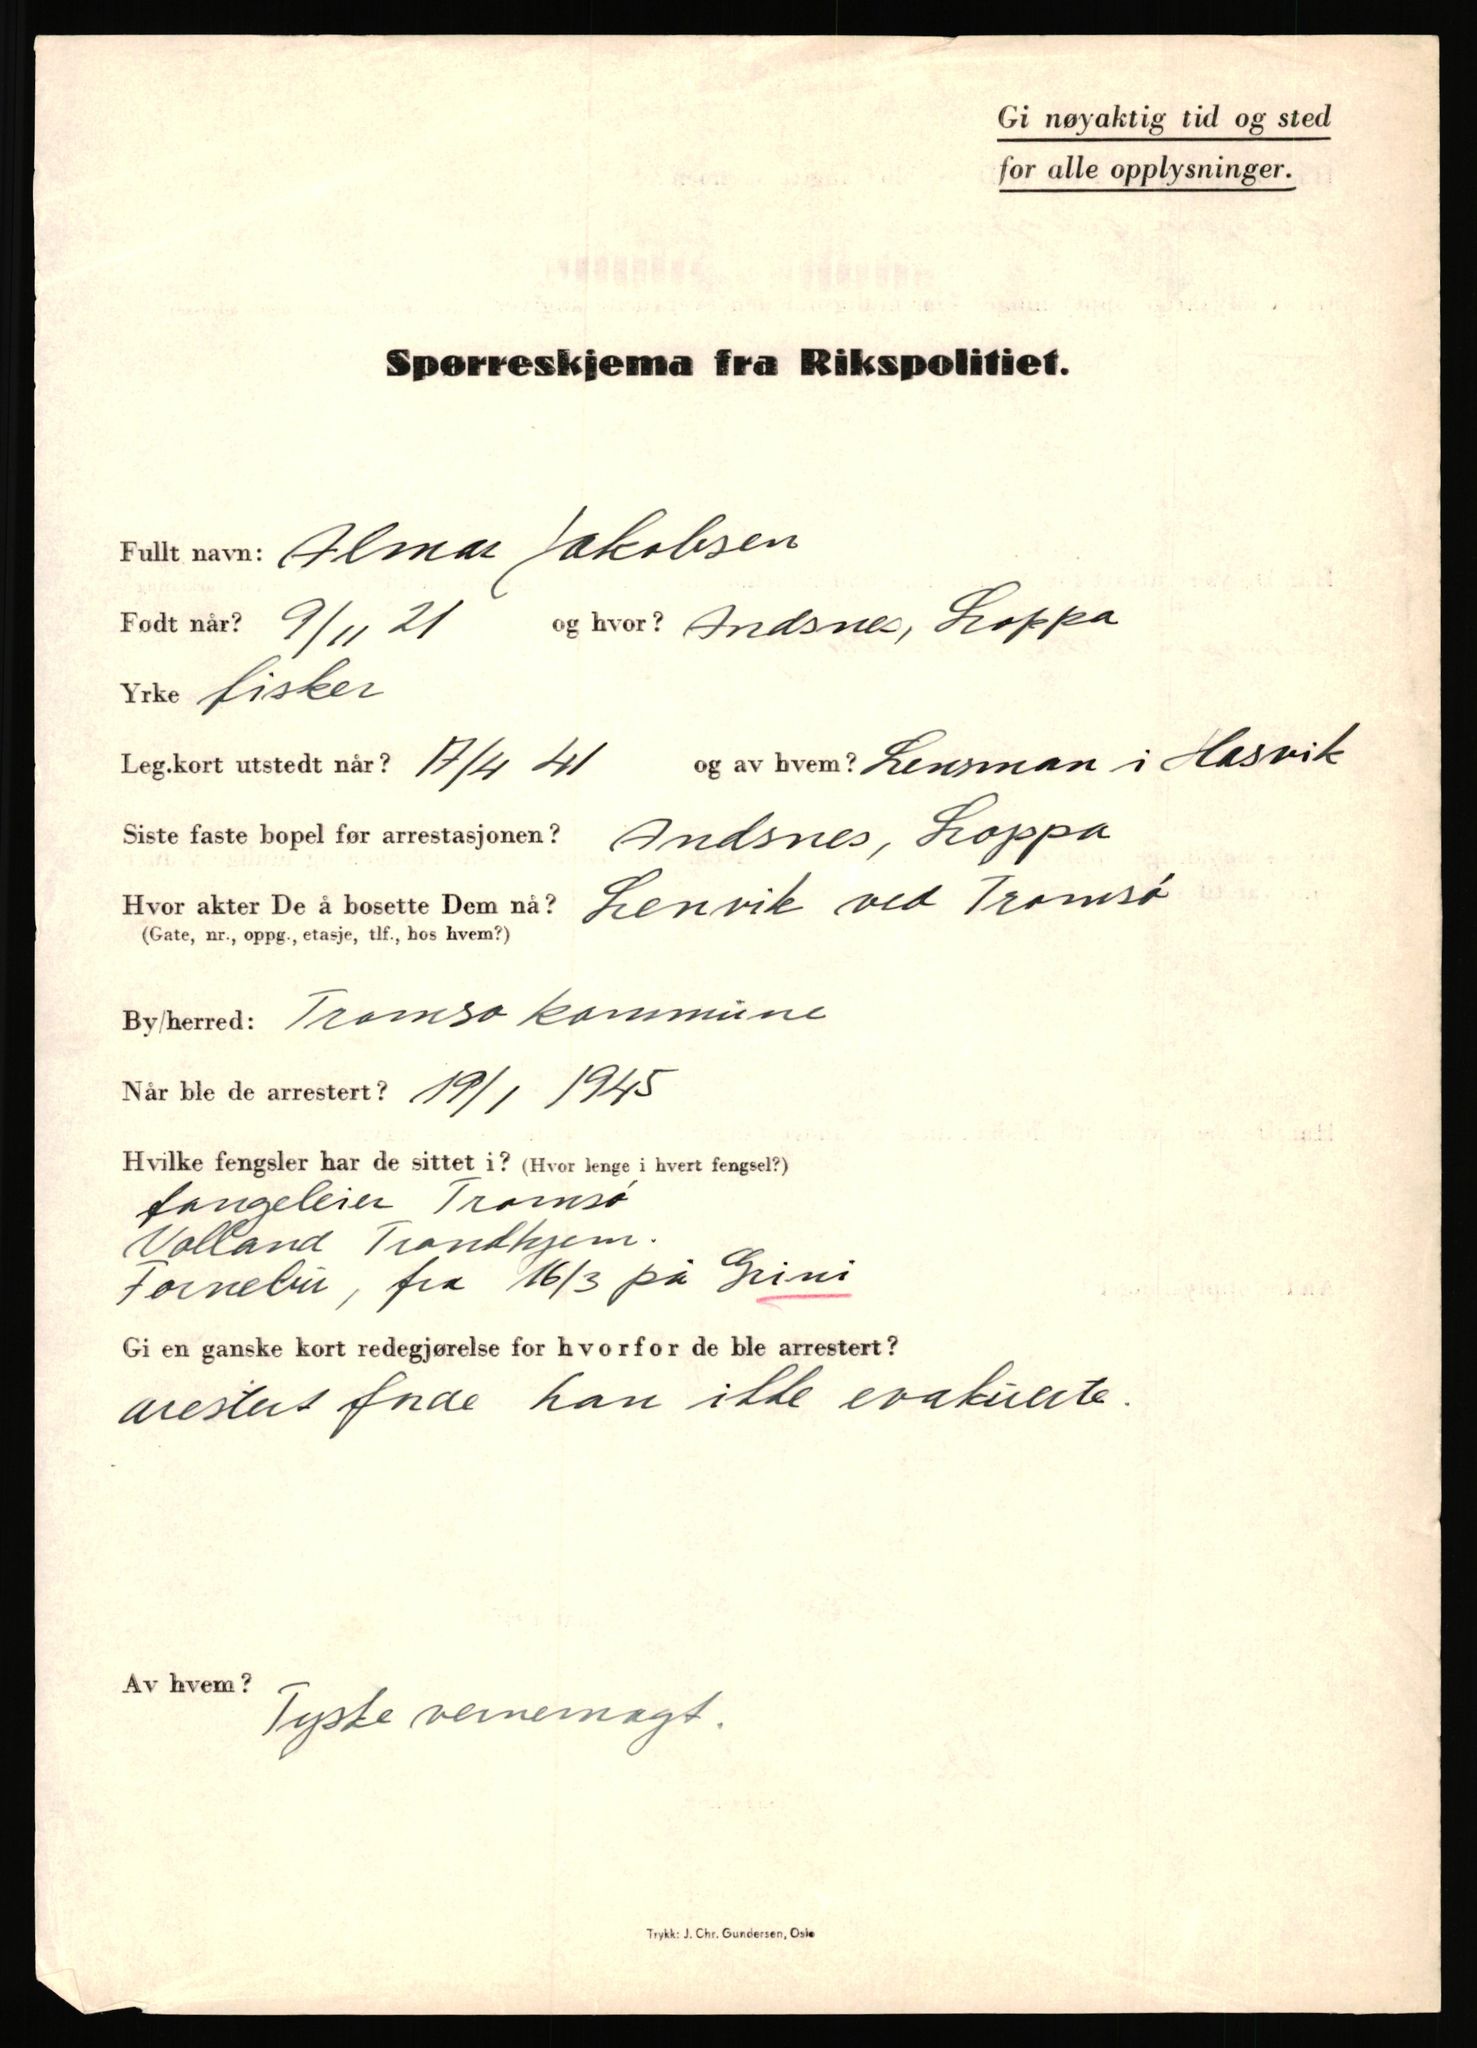 Gi nøyaktig tid og sted
for alle opplysninger.
Spørreskjema fra Rikspolitiet.
Fullt navn: Almar Jakobsen
Født når? 9/11 21 og hvor? Andsnes, Loppa
Yrke fisker
Leg.kort utstedt når? 17/4 41 og av hvem? Lensman i Hasvik
Siste faste bopel før arrestasjonen? Andsnes, Loppa
Hvor akter De å bosette Dem nå? Lenvik ved Tromsø
(Gate, nr., oppg., etasje, tlf., hos hvem?)
By/herred: Tromsø kommune
Når ble de arrestert? 19/1 1945
Hvilke fengsler har de sittet i? (Hvor lenge i hvert fengsel?)
fangeleier Tromsø
Volland Trondhjem.
Fornebu, fra 16/3 på Grini
Gi en ganske kort redegjørelse for hvorfor de ble arrestert?
arestert han ikke evakuerte.
Av hvem? Tyske vernemagt.
Trykk: J. Chr. Gundersen, Oslo